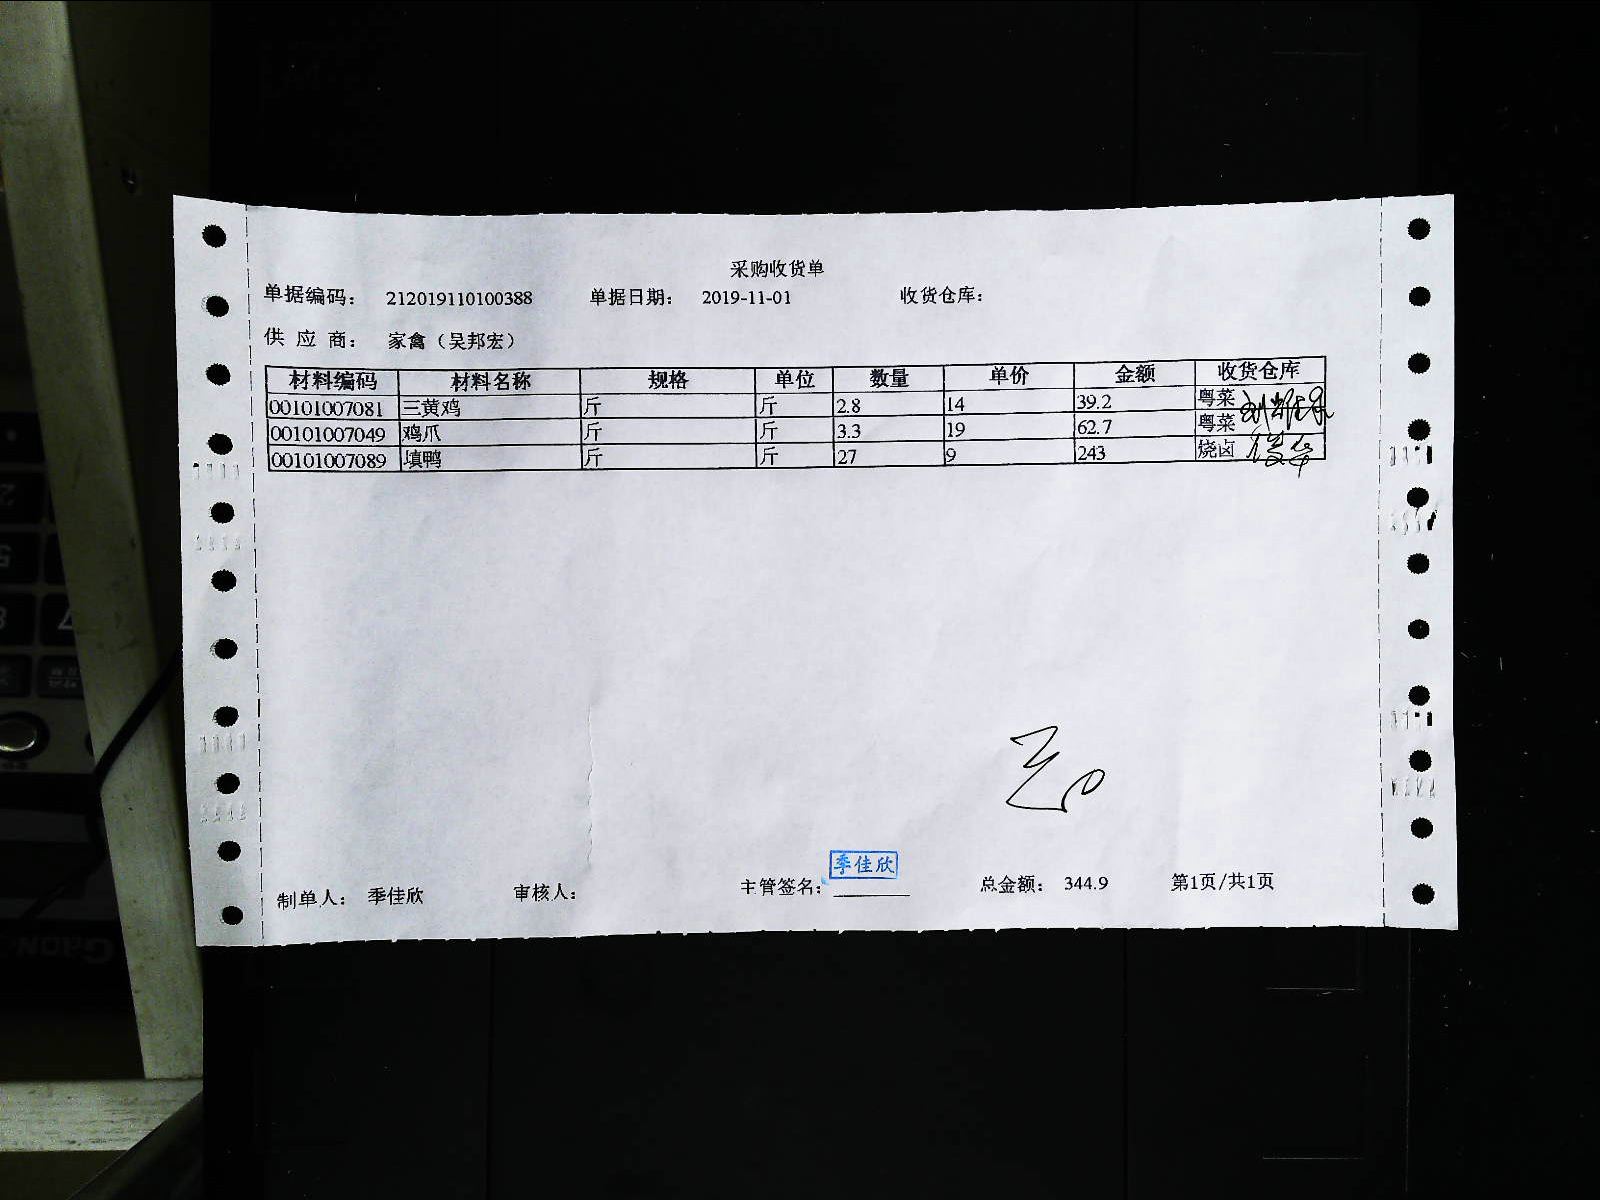 采购收货单
单据编码： 212019110100388 单据日期： 2019-11-01 收货仓库：
供 应 商： 家禽（吴邦宏）
材料编码 材料名称 规格 单位 数量 单价 金额 收货仓库
00101007081 三黄鸡 斤 斤 2.8 14 39.2 粤菜
00101007049 鸡爪 斤 斤 3.3 19 62.7 粤菜
00101007089 填鸭 斤 斤 27 9 243 烧卤
季佳欣
制单人： 季佳欣 审核人： 主管签名： 总金额： 344.9 第1页/共1页